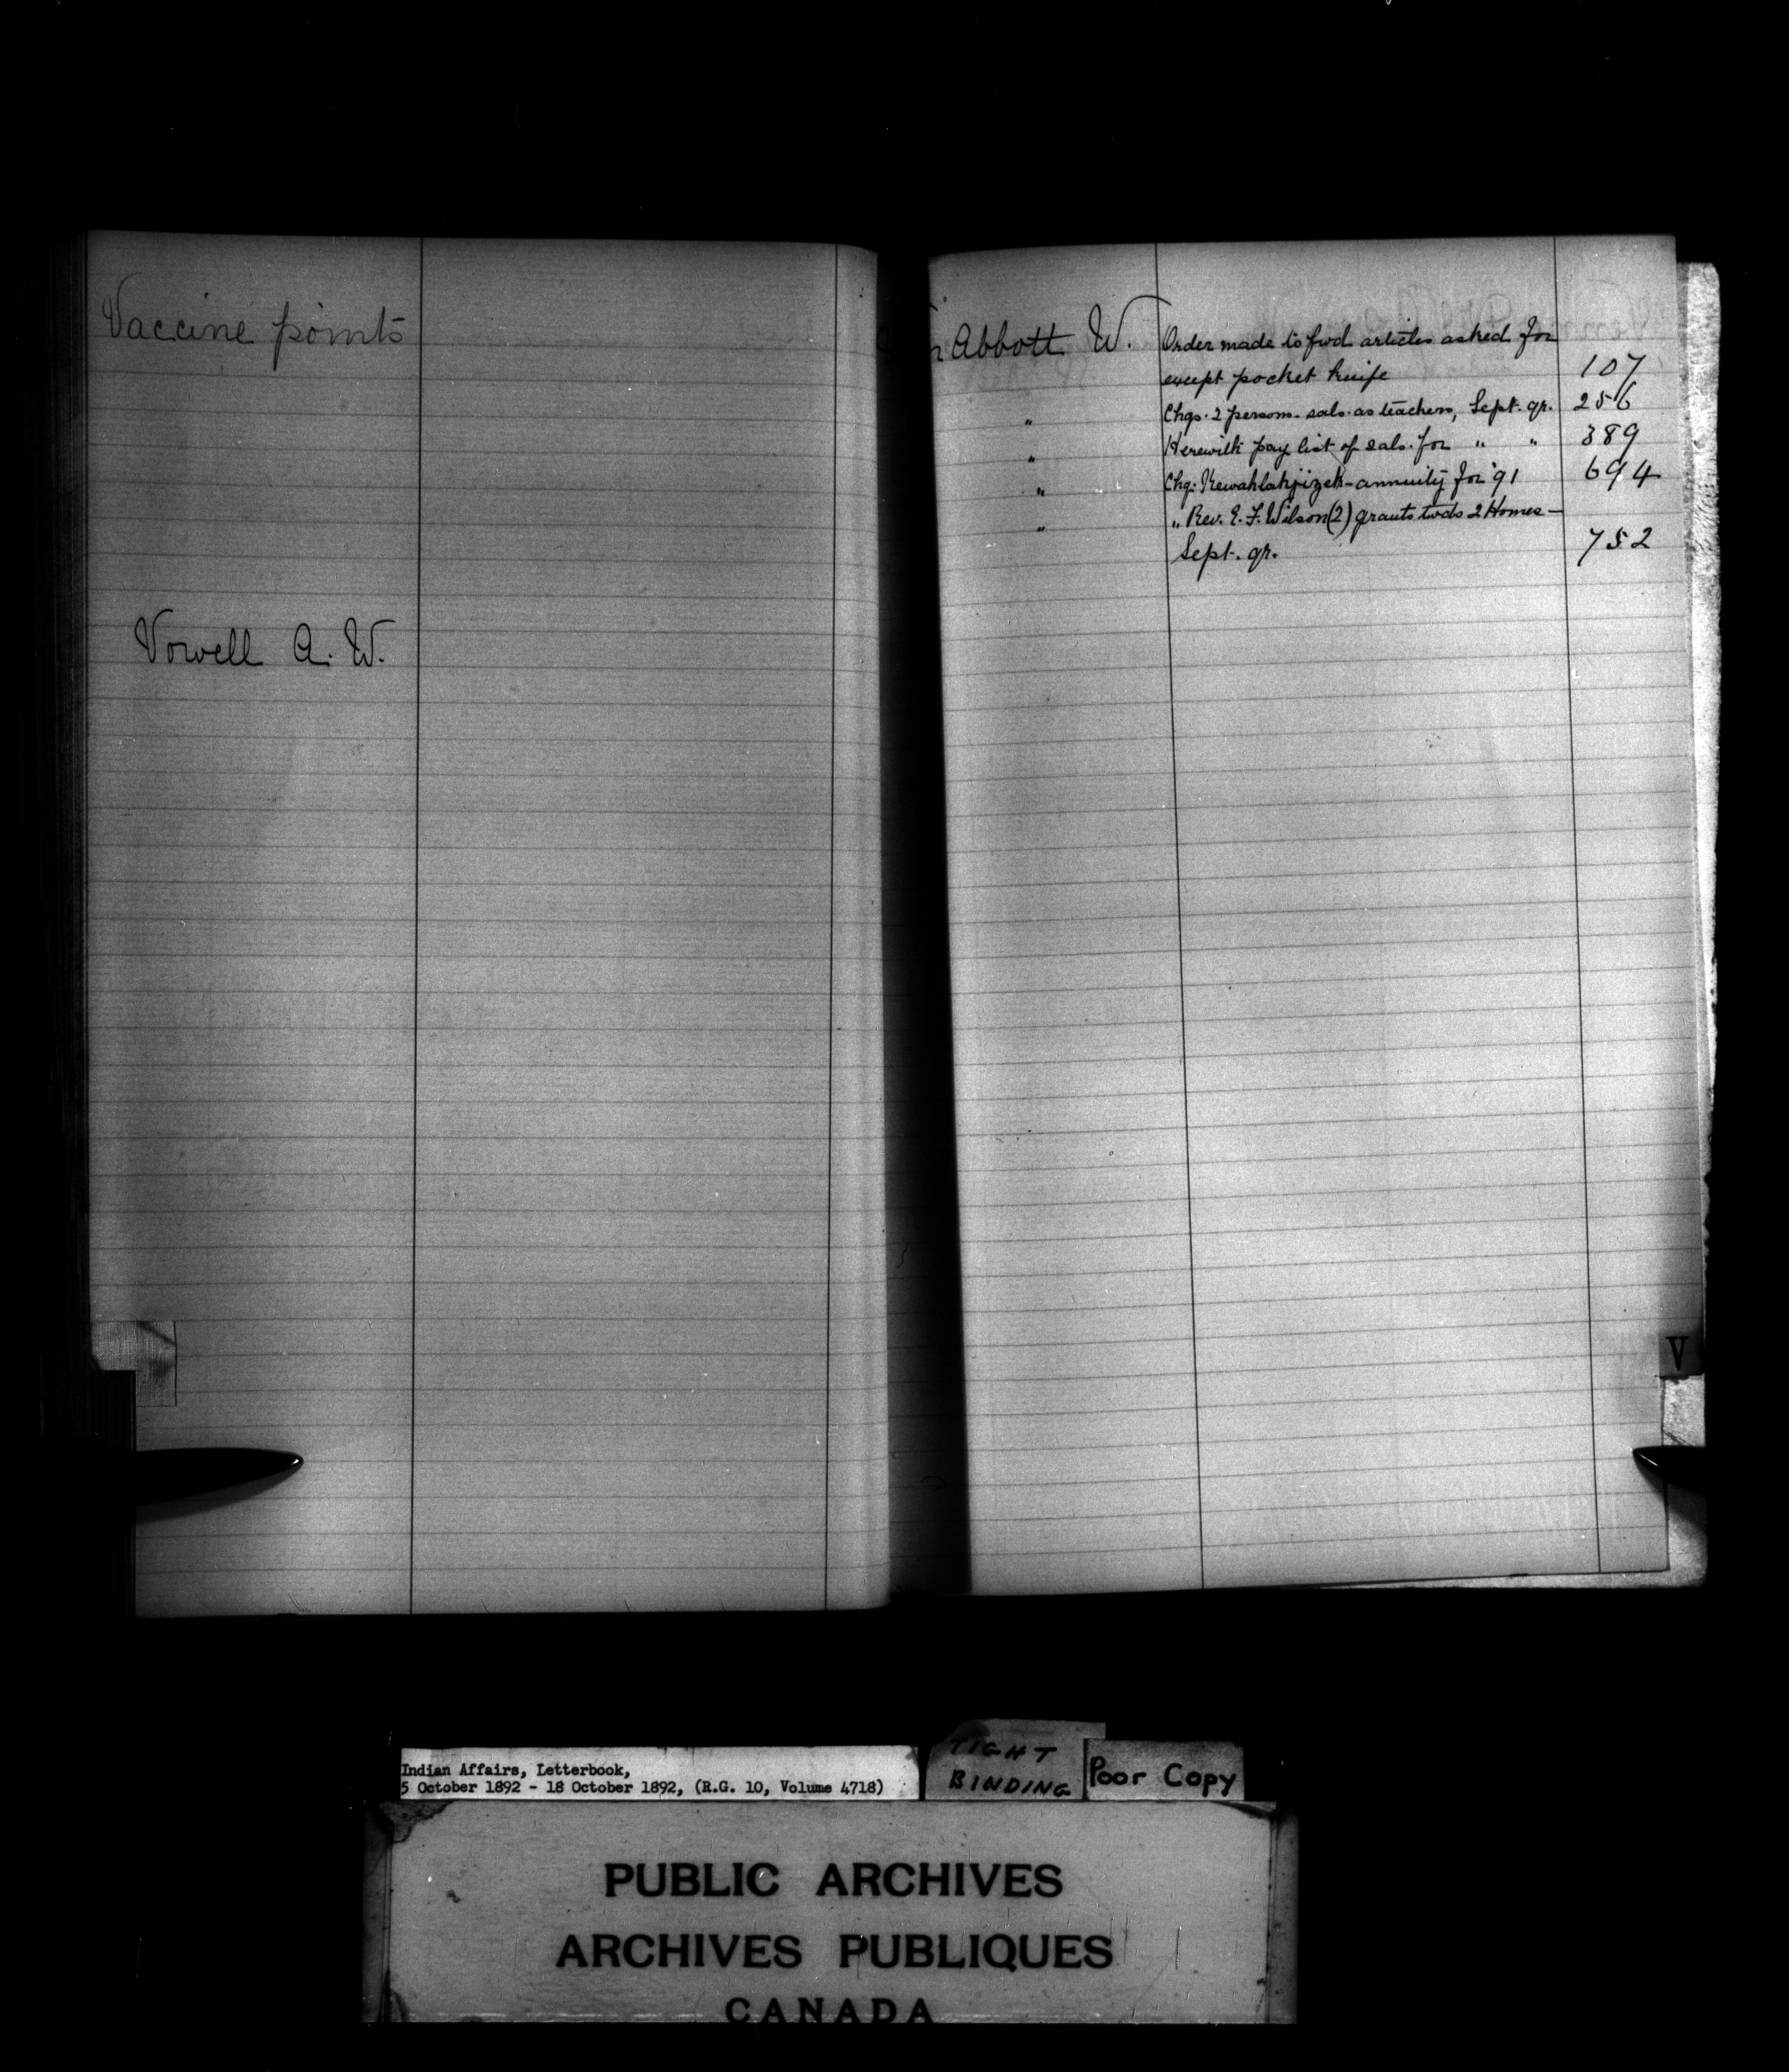 Vaccine points
Vowell A. W.
n Abbott W. Order made to fwd articles asked for
except pocket knife 107
" Chqs. 2 persons - sals. as teachers, Sept. qr. 256
" Herewith pay list of sals. for " " 389
" Chq: Kewahlahjizek - annuity for '91 694
" " Rev. E. F. Wilson (2) grants twds 2 Homes -
Sept. qr. 752
V
Indian Affairs, Letterbook,
5 October 1892 - 18 October 1892, (R.G. 10, Volume 4718)
TIGHT
BINDING
Poor Copy
PUBLIC ARCHIVES
ARCHIVES PUBLIQUES
CANADA